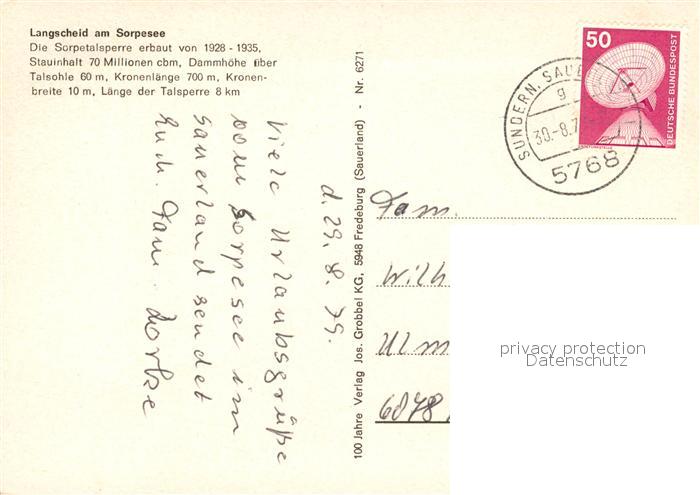 Langscheid am Sorpesee
Die Sorpetalsperre erbaut von 1928 - 1935,
Stauinhalt 70 Millionen cbm, Dammhöhe über
Talsohle 60 m, Kronenlänge 700 m, Kronen-
breite 10 m, Länge der Talsperre 8 km
d. 29. 8. 79.
Viele Urlaubsgrüße
vom Sorpesee im
Sauerland sendet
Euch. Fam.
100 Jahre Verlag Jos. Grobbel KG, 5948 Fredeburg (Sauerland) - Nr. 6271
50
DEUTSCHE BUNDESPOST
SUNDERN, SAUE
g
30.-8.7
5768
Fam.
Wilh
Ulm
6078
privacy protection
Datenschutz